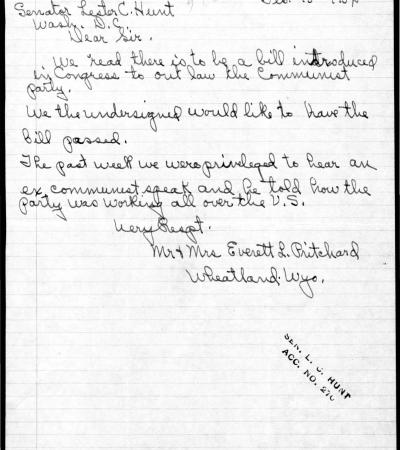 Senator Lester C. Hunt
Wash. D. C.
Dear Sir.
We read there is to be a bill introduced
in Congress to out law the Communist
party.
We the undersigned would like to have the
bill passed.
The past week we were privileged to hear an
ex communist speak and he told how the
party was working all over the U.S.
Very Respt.
Mr & Mrs Everett L. Pritchard
Wheatland: Wyo.
SEN. L. C. HUNT
ACC. NO. 270